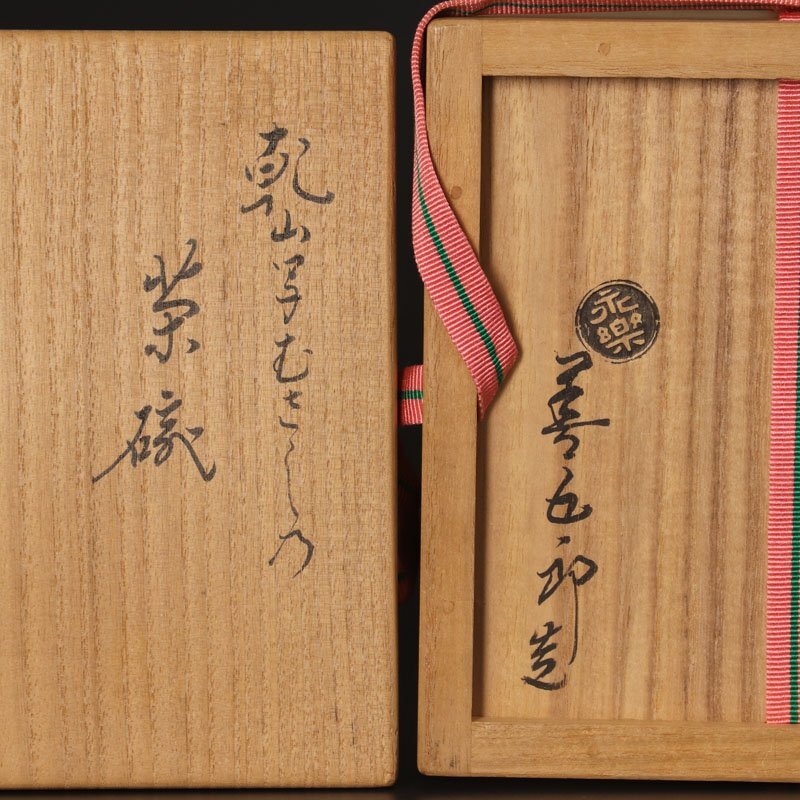 乾山写むさしの
茶碗
永樂
善五郎造